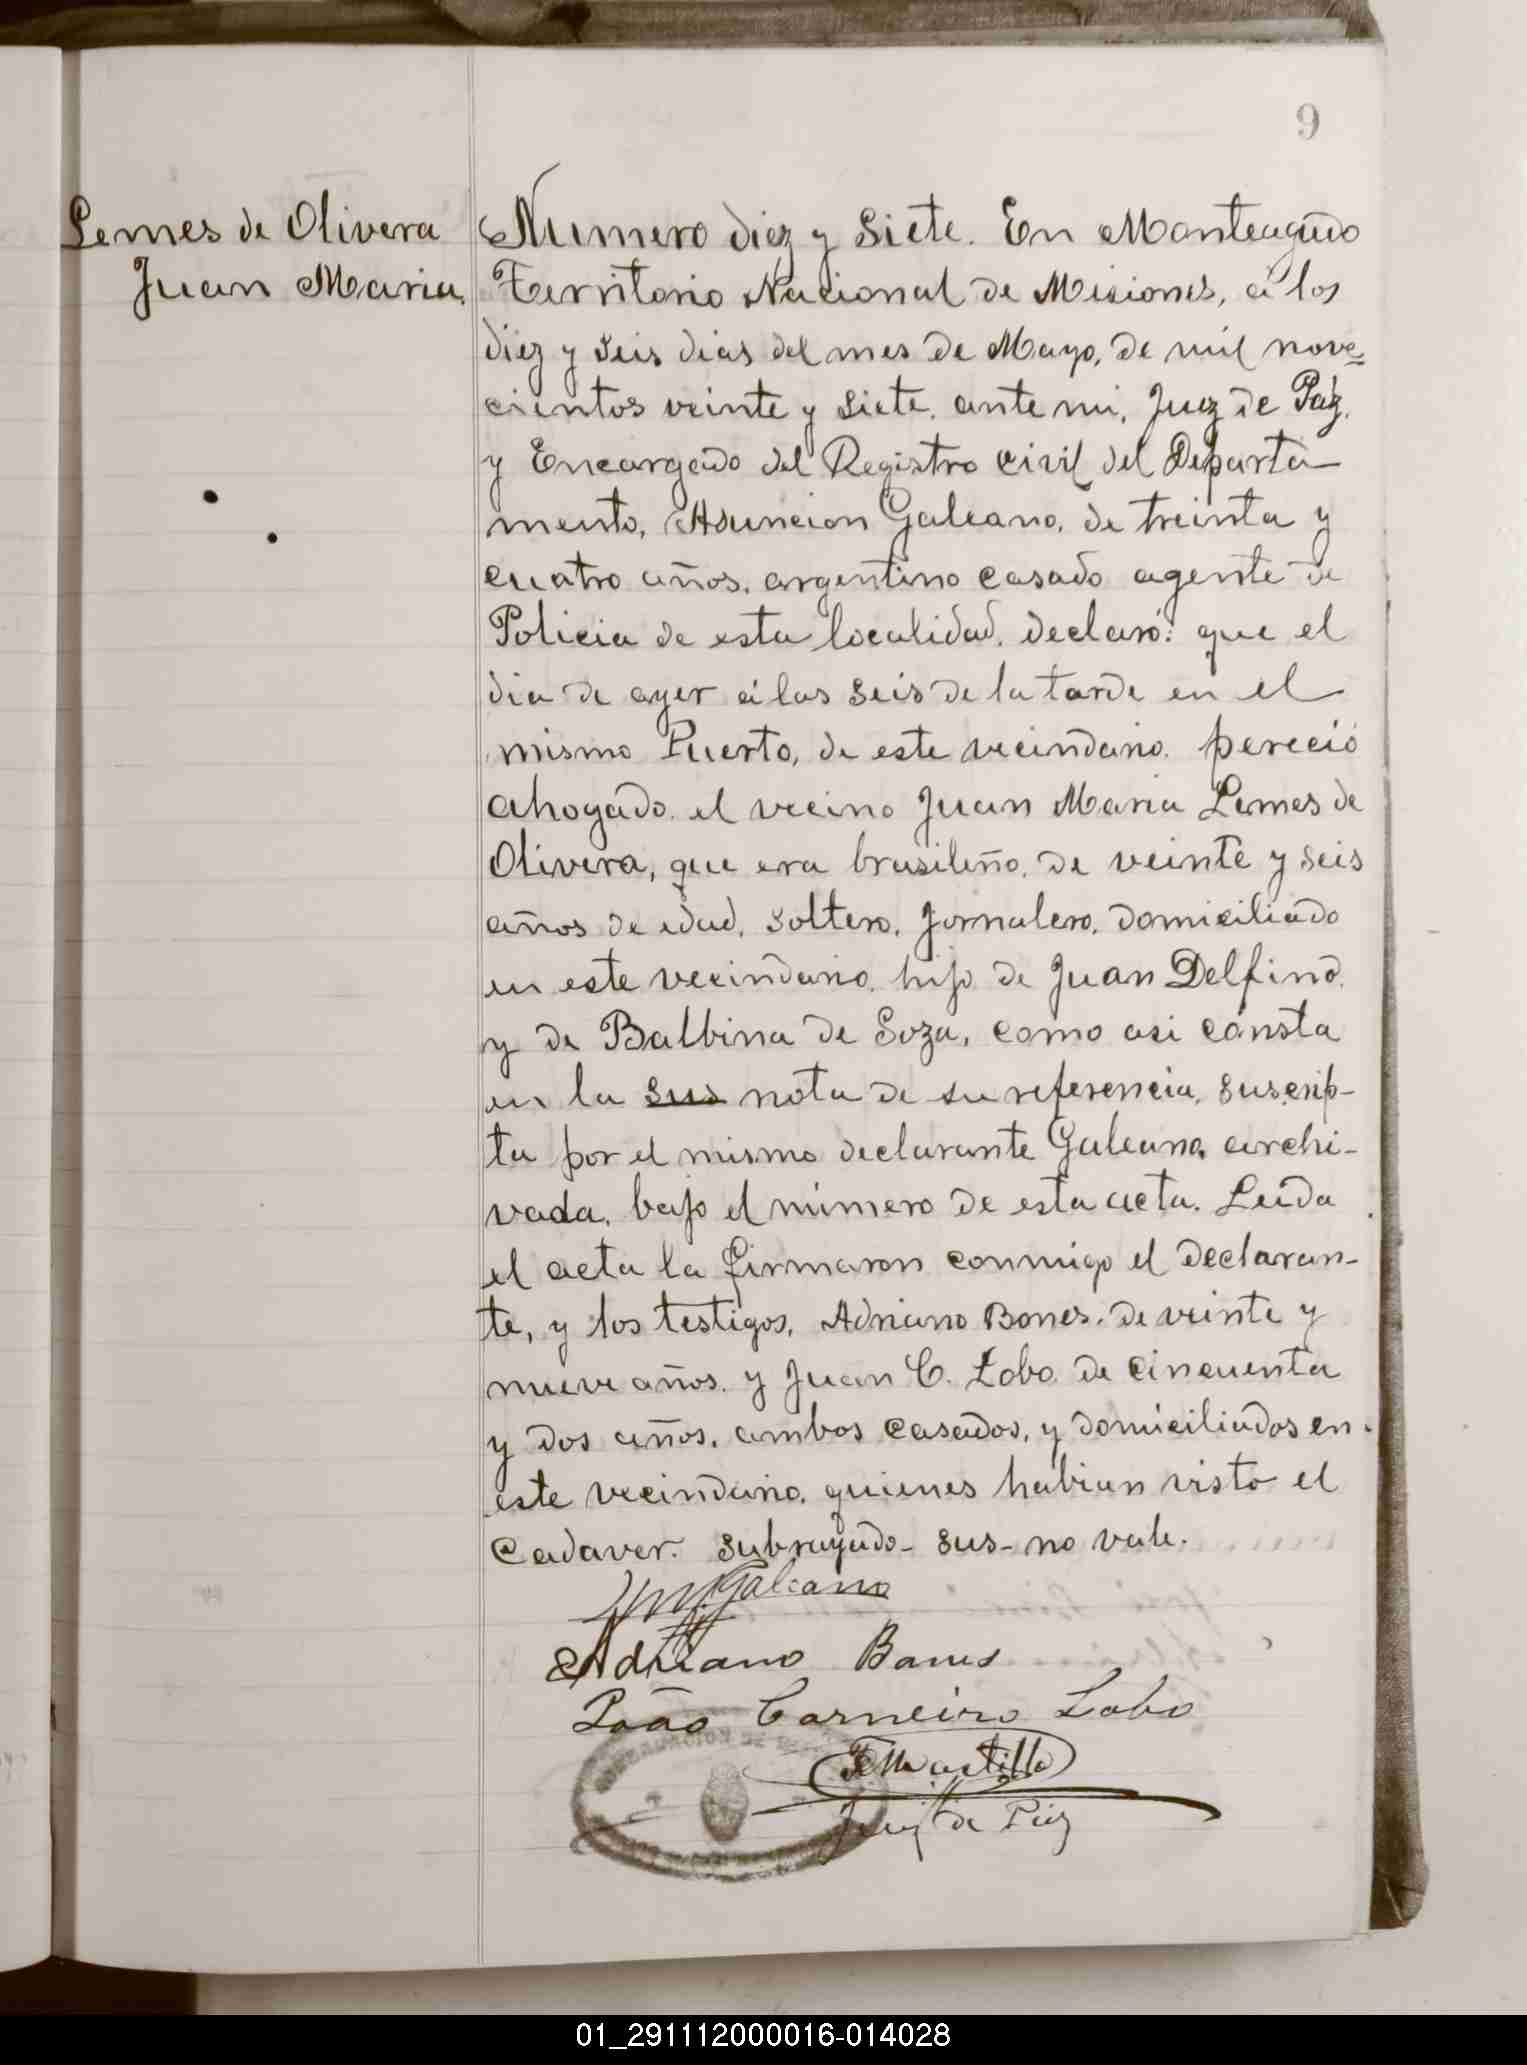 9
Lemes de Olivera
Juan Maria.
Numero diez y siete. En Monteagudo
Territorio Nacional de Misiones, á los
diez y seis dias del mes de Mayo, de mil nove=
cientos veinte y siete. ante mi, Juez de Paz.
y Encargado del Registro civil del Departa-
mento, Asuncion Galeano, de treinta y
cuatro años. argentino casado agente de
Policia de esta localidad. declaró: que el
dia de ayer á las seis de la tarde en el
mismo Puerto, de este vecindario. pereció
ahogado. el vecino Juan Maria Lemes de
Olivera, que era brasileño. de veinte y seis
años de edad, soltero, jornalero, domiciliado
en este vecindario. hijo de Juan Delfino.
y de Balbina de Soza, como asi consta
en la sus nota de su referencia, suscrip-
ta por el mismo declarante Galeano. archi-
vada. bajo el número de esta acta. Leida
el acta la firmaron conmigo el declaran-
te, y los testigos, Adriano Bones. de veinte y
nueve años. y Juan C. Lobo de cincuenta
y dos años. ambos casados, y domiciliados en
este vecindario. quienes habian visto el
cadaver. subrayado - sus - no vale.
Galeano
Adriano Bones
João Carneiro Lobo
Juez de Paz
01_291112000016-014028